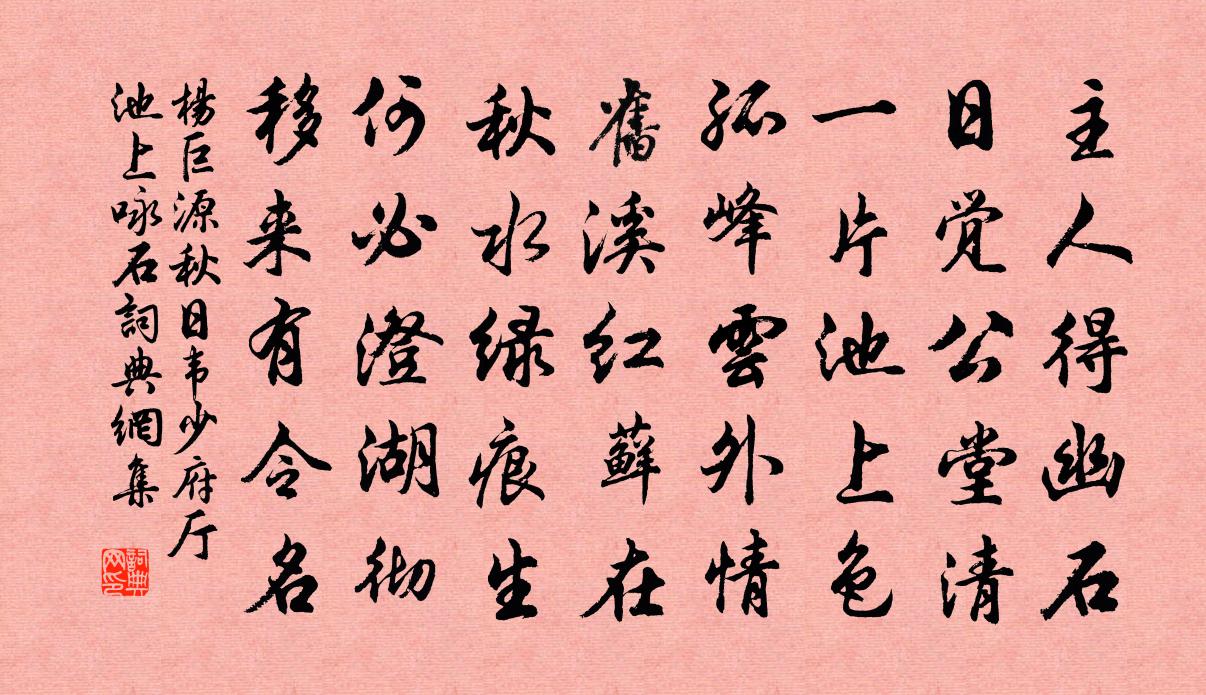 主人得幽石
日觉公堂清
一片池上色
孤峰雲外情
舊溪红蘚在
秋水绿痕生
何必澄湖彻
移来有令名
楊巨源秋日韦少府厅
池上咏石詞典網集
詞典网印